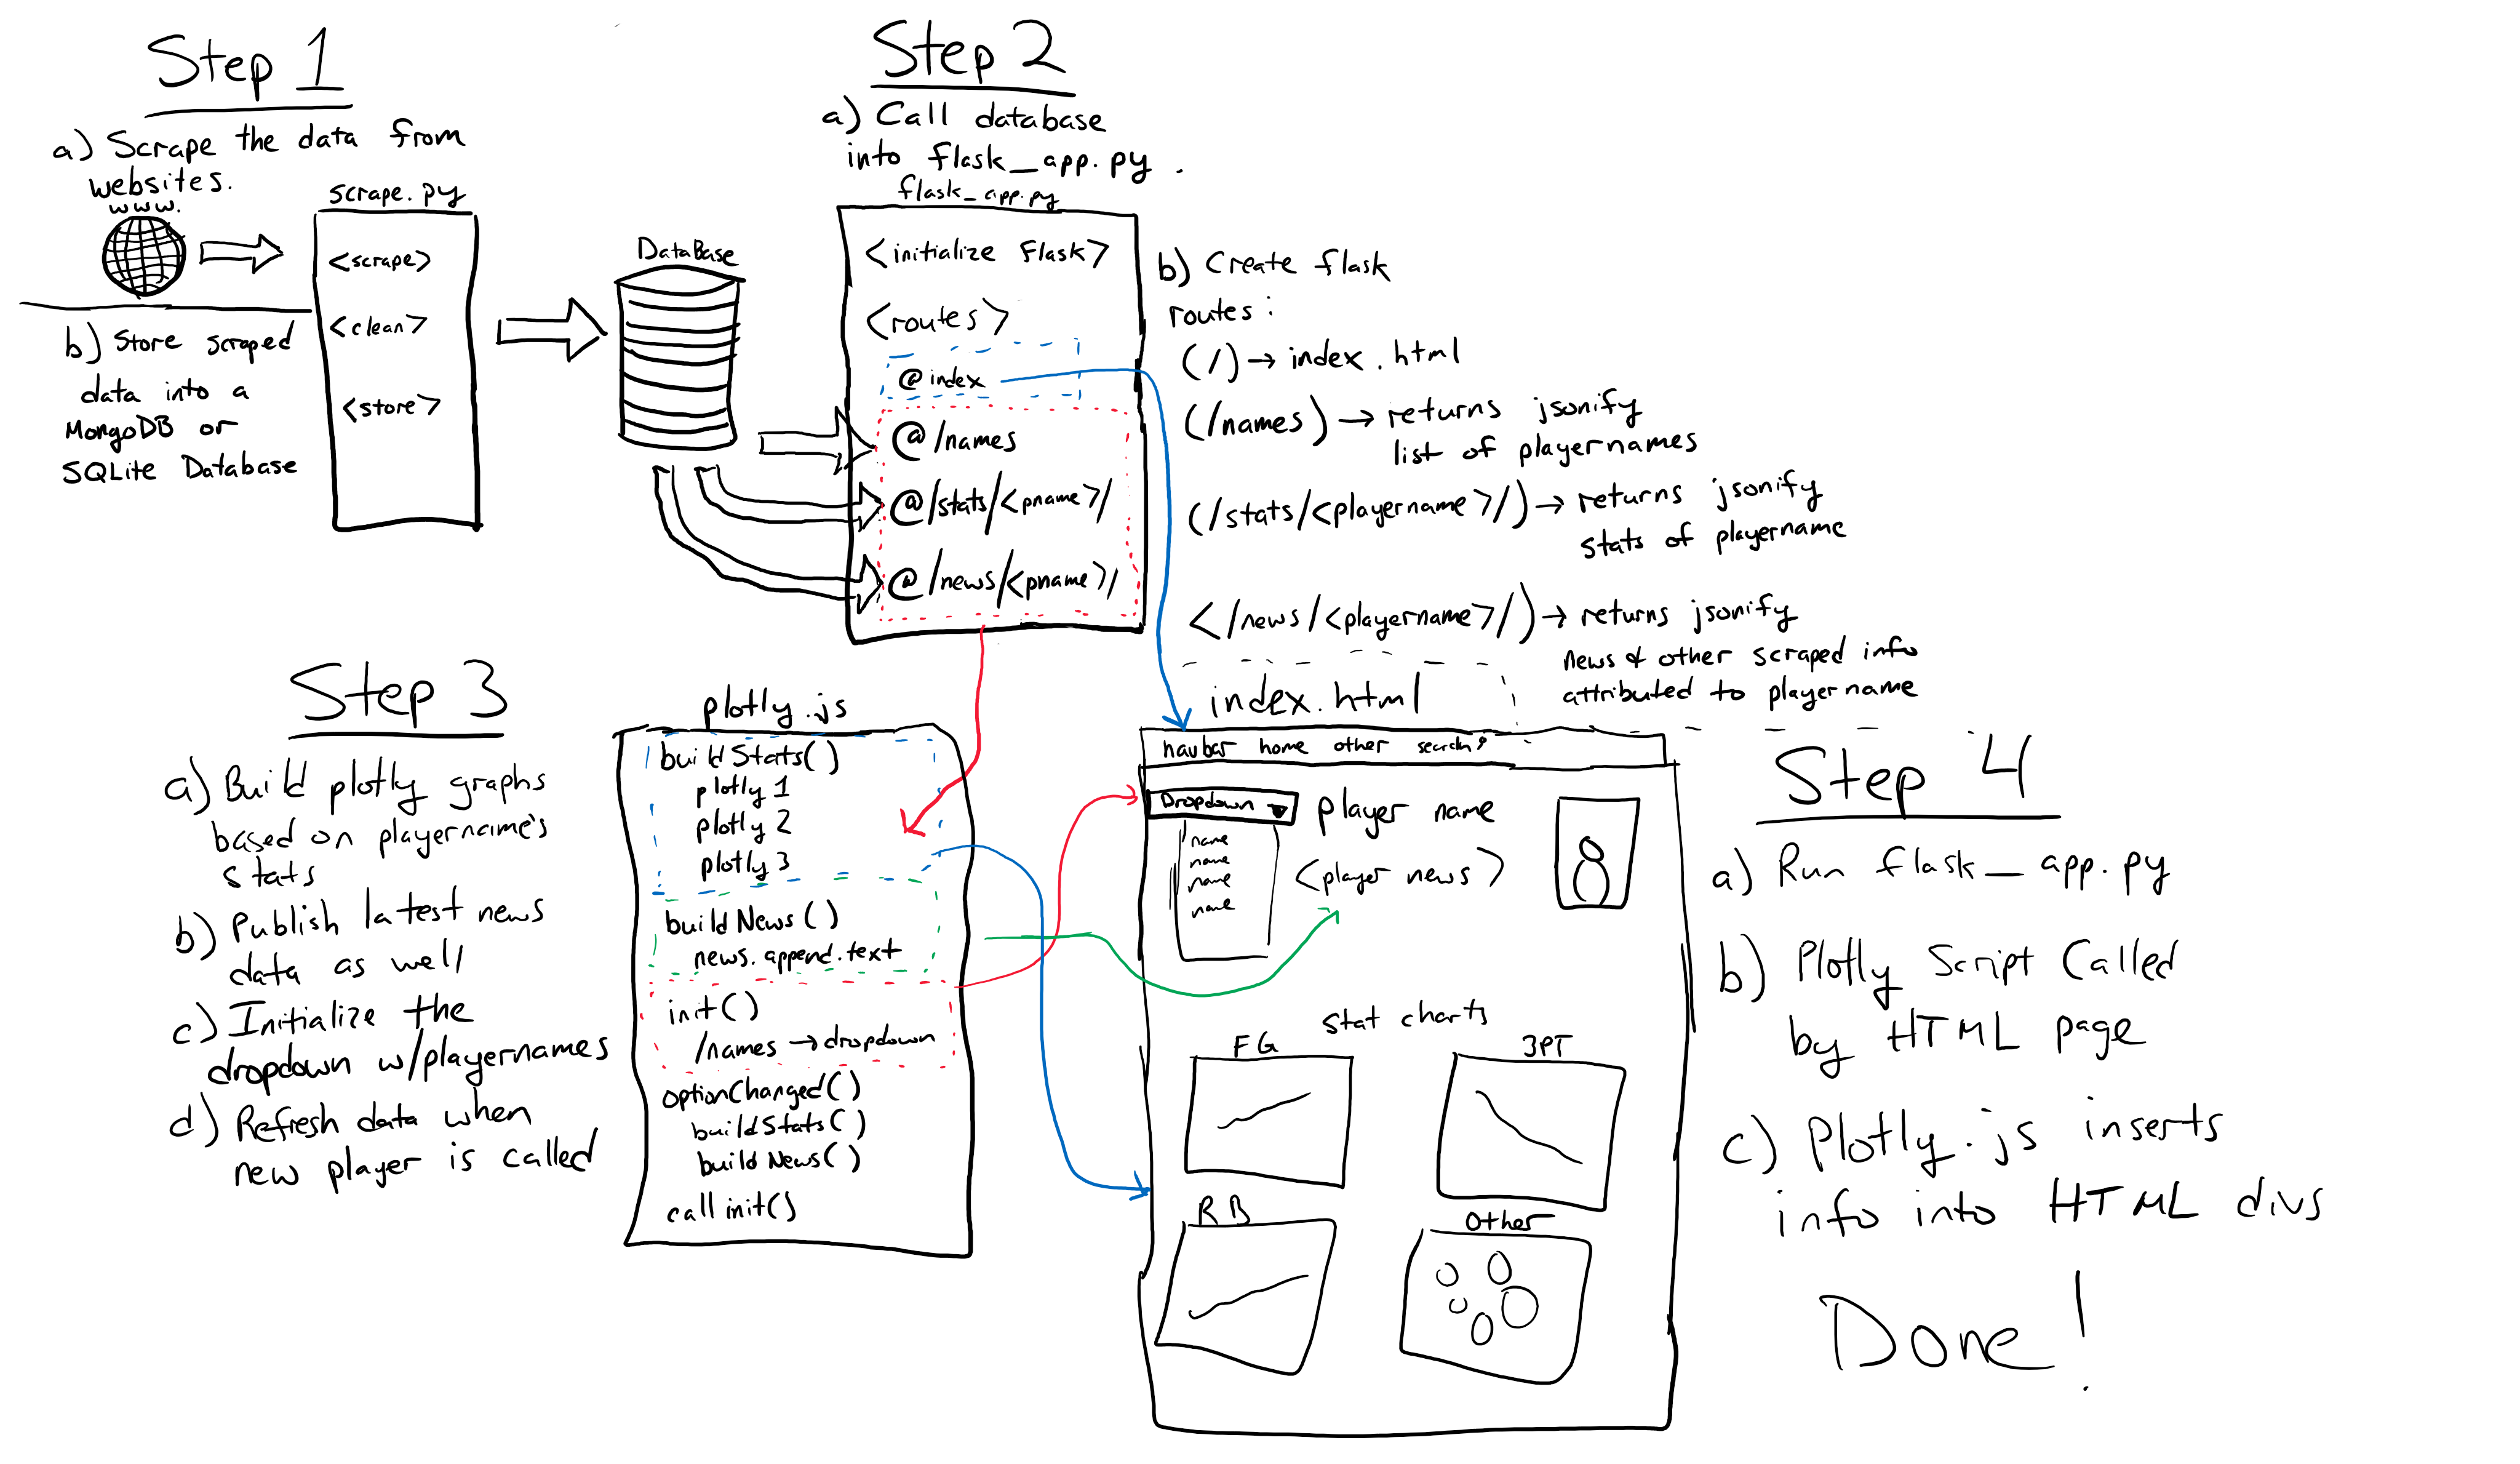 Step 1
a) Scrape the data from
websites.
www.
scrape.py
<scrape>
<clean>
<store>
b) Store scraped
data into a
MongoDB or
SQLite Database
DataBase
Step 2
a) Call database
into flask_app.py.
flask_app.py
<initialize Flask>
<routes>
@index
@/names
@/stats/<pname>/
@/news/<pname>/
b) Create flask
routes:
(/) → index.html
(/names) → returns jsonify
list of playernames
(/stats/<playername>/) → returns jsonify
stats of playername
</news/<playername>/) → returns jsonify
news & other scraped info
attributed to playername
Step 3
a) Build plotly graphs
based on playername's
stats
b) Publish latest news
data as well
c) Initialize the
dropdown w/playernames
d) Refresh data when
new player is called
plotly.js
buildStats()
plotly 1
plotly 2
plotly 3
buildNews()
news.append.text
init()
/names → dropdown
optionChanged()
buildStats()
buildNews()
call init()
index.html
navbar home other search
Dropdown
name
name
name
name
player name
<player news>
Stat charts
FG
3PT
RB
Other
Step 4
a) Run flask_app.py
b) Plotly Script Called
by HTML page
c) Plotly.js inserts
info into HTML divs
Done!